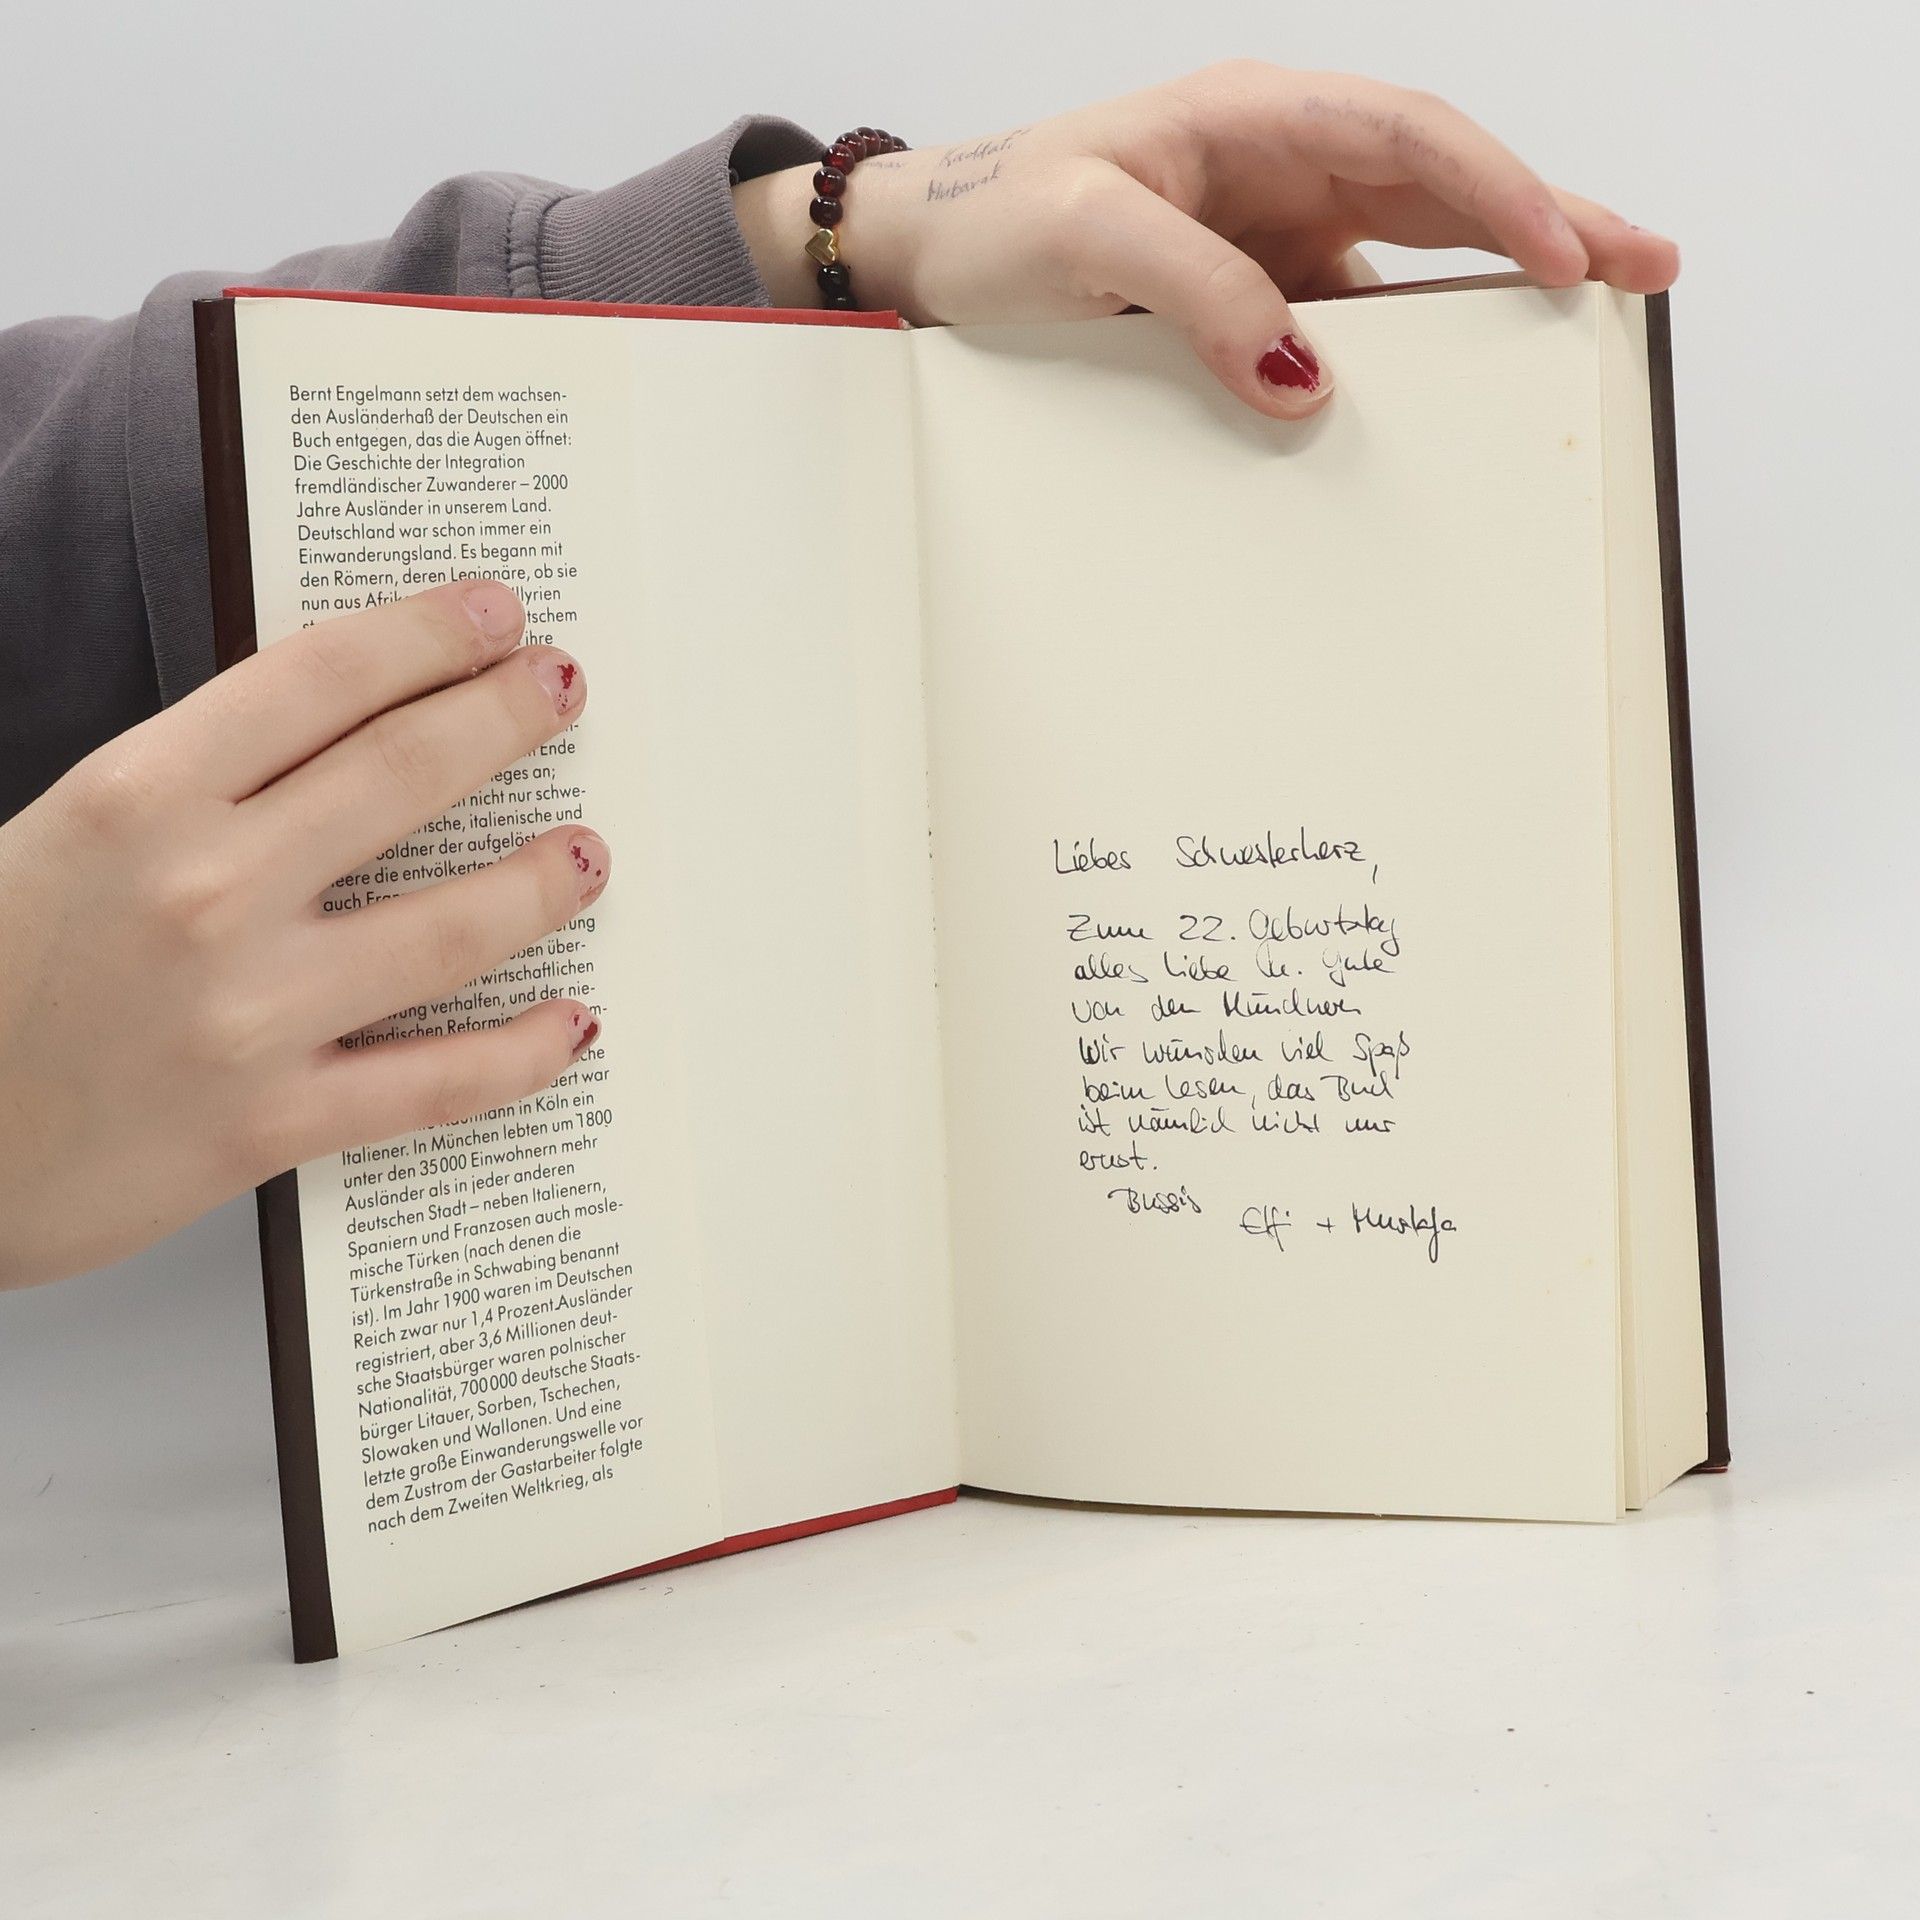 Kaddafi
Mubarak
Bernt Engelmann setzt dem wachsen-
den Ausländerhaß der Deutschen ein
Buch entgegen, das die Augen öffnet:
Die Geschichte der Integration
fremdländischer Zuwanderer – 2000
Jahre Ausländer in unserem Land.
Deutschland war schon immer ein
Einwanderungsland. Es begann mit
den Römern, deren Legionäre, ob sie
nun aus
ihre
Ende
an;
nicht nur schwe-
italienische und
der aufgelöst
die
auch
über-
wirtschaftlichen
verhalfen, und der nie-
war
in Köln ein
Italiener. In München lebten um 1800
unter den 35000 Einwohnern mehr
Ausländer als in jeder anderen
deutschen Stadt – neben Italienern,
Spaniern und Franzosen auch mosle-
mische Türken (nach denen die
Türkenstraße in Schwabing benannt
ist). Im Jahr 1900 waren im Deutschen
Reich zwar nur 1,4 Prozent Ausländer
registriert, aber 3,6 Millionen deut-
sche Staatsbürger waren polnischer
Nationalität, 700000 deutsche Staats-
bürger Litauer, Sorben, Tschechen,
Slowaken und Wallonen. Und eine
letzte große Einwanderungswelle vor
dem Zustrom der Gastarbeiter folgte
nach dem Zweiten Weltkrieg, als
Liebes Schwesterherz,
Zum 22. Geburtstag
alles Liebe u. Gute
von den Münchnern
Wir wünschen viel Spaß
beim Lesen, das Buch
ist nämlich nicht nur
ernst.
Bussis
Elfi + Mustafa